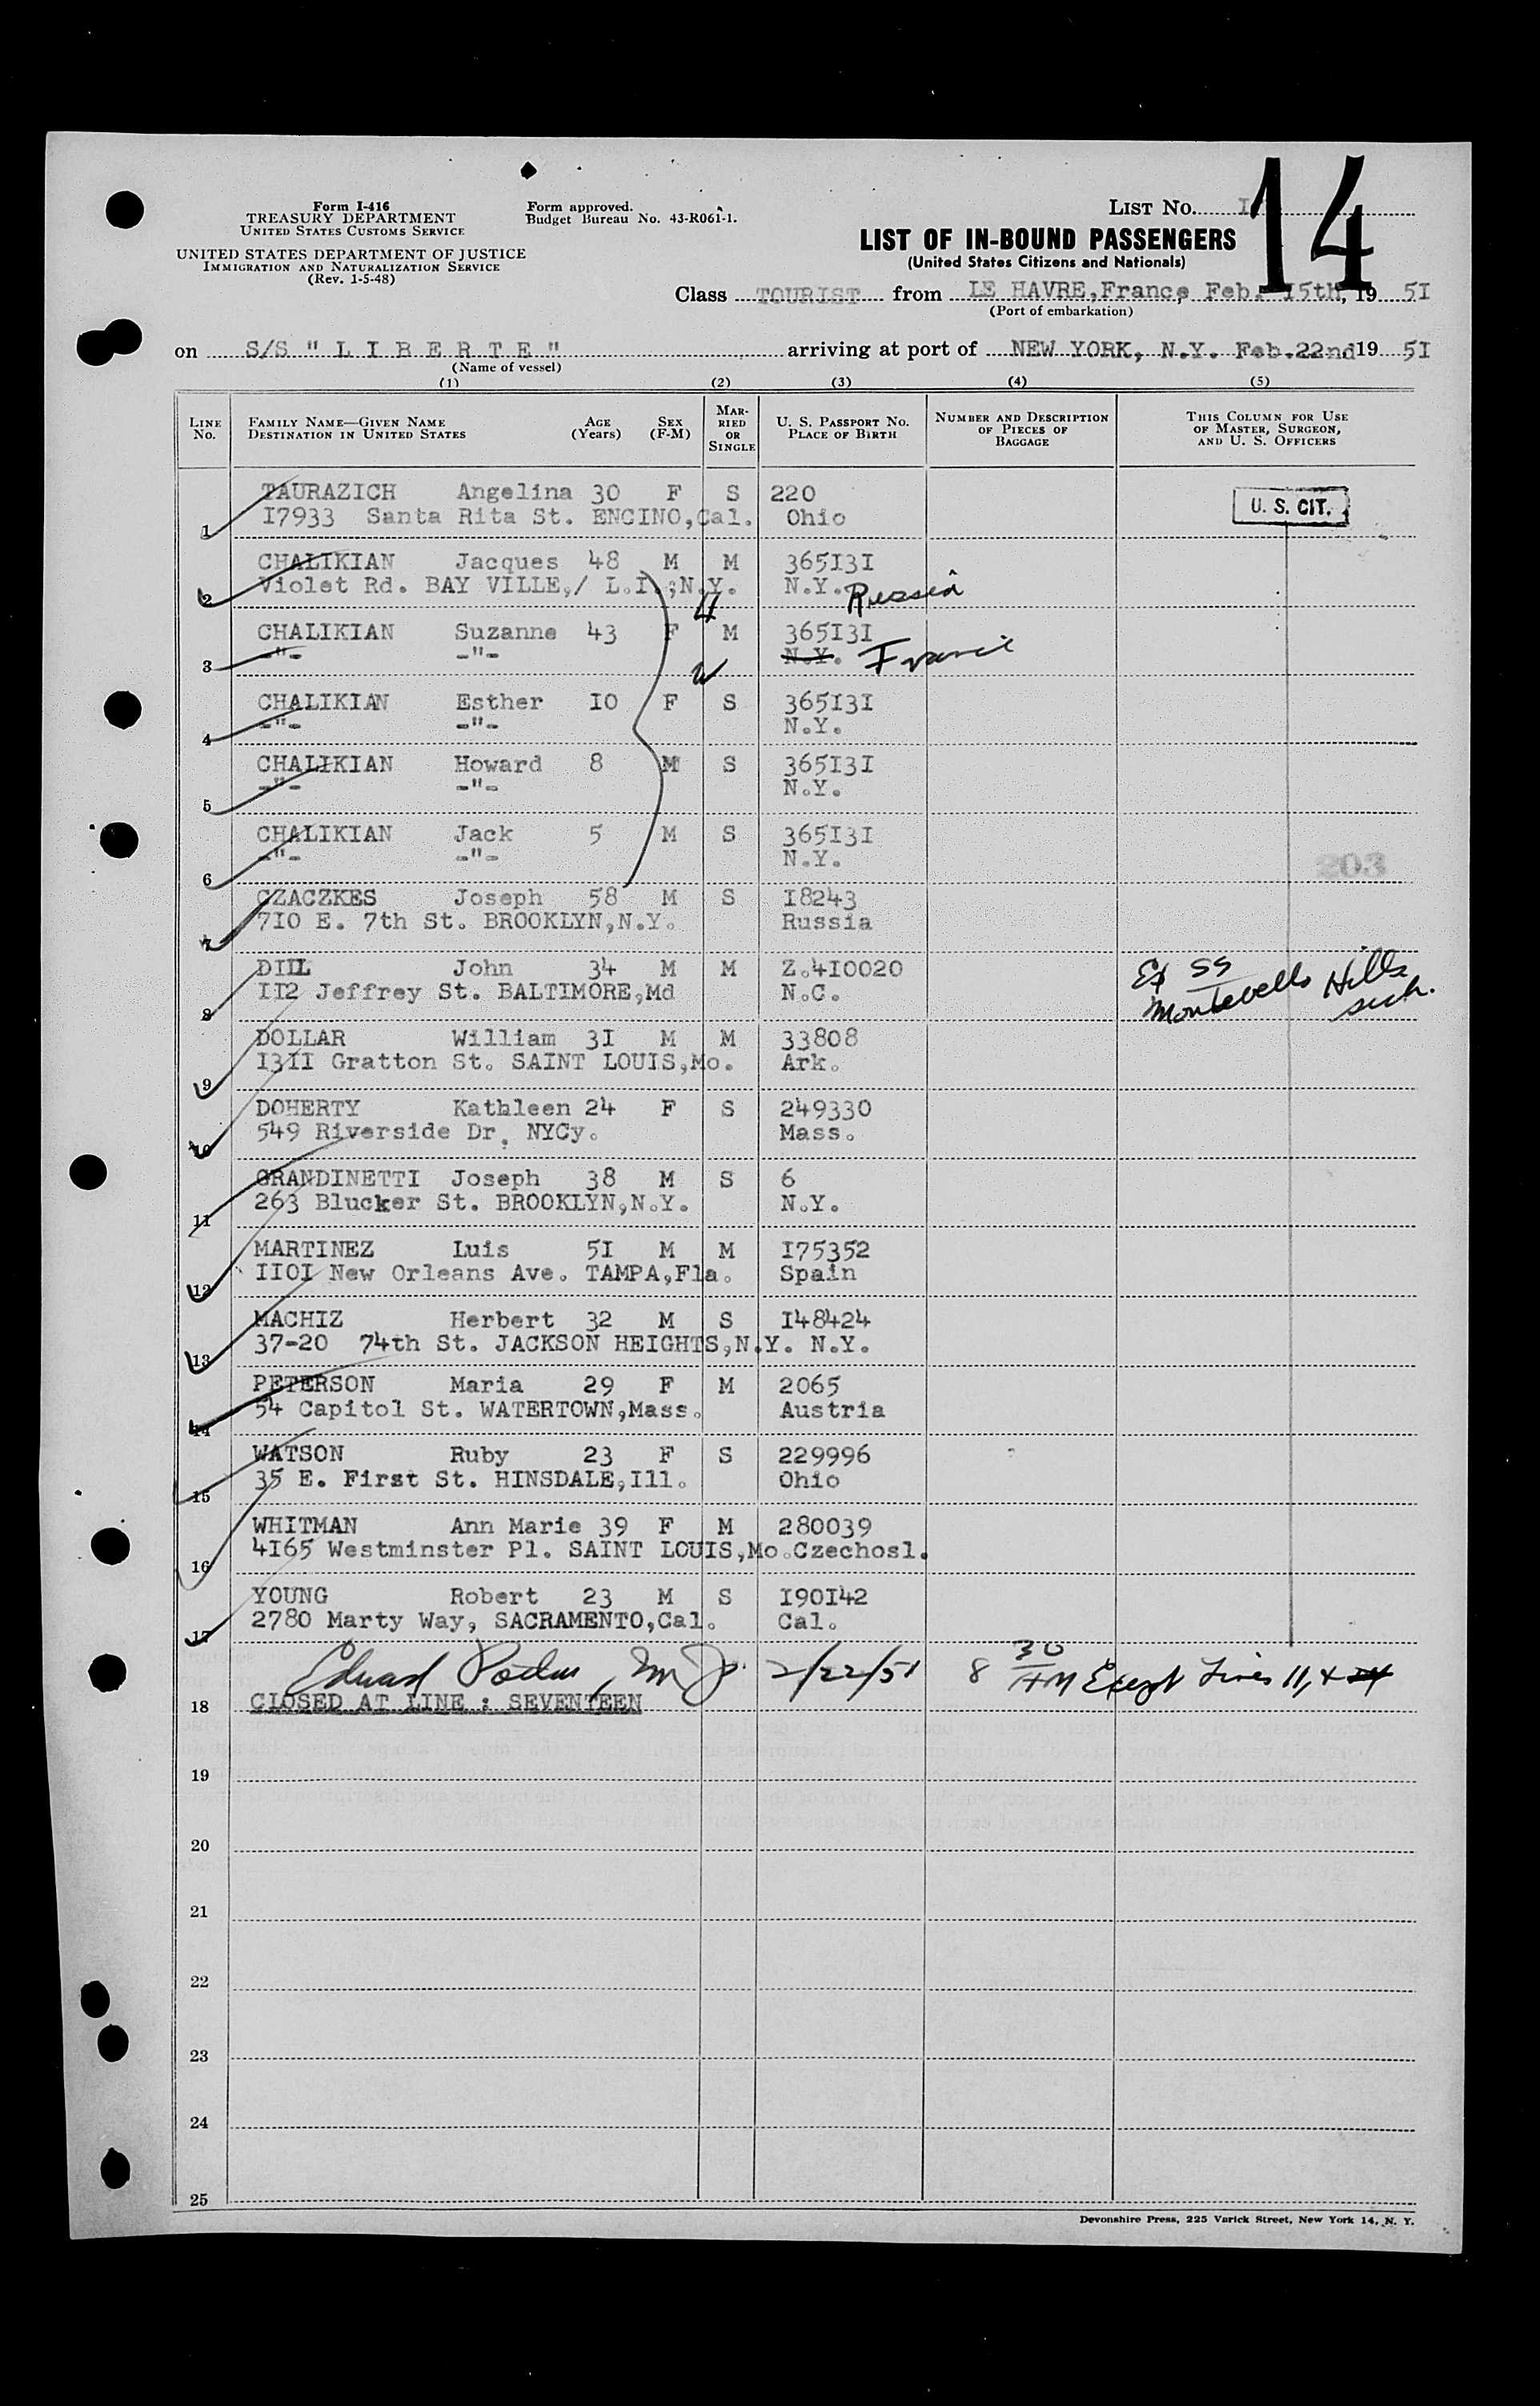 Form I-416
TREASURY DEPARTMENT
UNITED STATES CUSTOMS SERVICE
UNITED STATES DEPARTMENT OF JUSTICE
IMMIGRATION AND NATURALIZATION SERVICE
(Rev. 1-5-48)
Form approved.
Budget Bureau No. 43-R061-1.
LIST No. I
14
LIST OF IN-BOUND PASSENGERS
(United States Citizens and Nationals)
Class TOURIST from LE HAVRE, France, Feb. 15th, 19 51
(Port of embarkation)
on S/S " L I B E R T E " arriving at port of NEW YORK, N.Y. Feb. 22nd 19 51
(Name of vessel)
(1) (2) (3) (4) (5)
LINE No. FAMILY NAME—GIVEN NAME DESTINATION IN UNITED STATES AGE (Years) SEX (F-M) MARRIED OR SINGLE U. S. PASSPORT No. PLACE OF BIRTH NUMBER AND DESCRIPTION OF PIECES OF BAGGAGE THIS COLUMN FOR USE OF MASTER, SURGEON, AND U. S. OFFICERS
TAURAZICH Angelina 30 F S 220 U. S. CIT.
1 I7933 Santa Rita St. ENCINO, Cal. Ohio
CHALIKIAN Jacques 48 M M 365I3I
2 Violet Rd. BAY VILLE,/ L.I.;N.Y. N.Y. Russia
H
CHALIKIAN Suzanne 43 F M 365I3I
3 -"- -"- N.Y. France
W
CHALIKIAN Esther IO F S 365I3I
4 -"- -"- N.Y.
CHALIKIAN Howard 8 M S 365I3I
5 -"- -"- N.Y.
CHALIKIAN Jack 5 M S 365I3I
6 -"- -"- N.Y.
203
CZACZKES Joseph 58 M S I8243
7 7IO E. 7th St. BROOKLYN, N.Y. Russia
DILL John 34 M M Z.4I0020 Ex SS
8 II2 Jeffrey St. BALTIMORE, Md N.C. Montebello Hills
DOLLAR William 3I M M 33808
9 I3II Gratton St. SAINT LOUIS, Mo. Ark.
DOHERTY Kathleen 24 F S 249330
10 549 Riverside Dr. NYCy. Mass.
GRANDINETTI Joseph 38 M S 6
11 263 Blucker St. BROOKLYN, N.Y. N.Y.
MARTINEZ Luis 5I M M I75352
12 IIOI New Orleans Ave. TAMPA, Fla. Spain
MACHIZ Herbert 32 M S I48424
13 37-20 74th St. JACKSON HEIGHTS, N.Y. N.Y.
PETERSON Maria 29 F M 2065
14 54 Capitol St. WATERTOWN, Mass. Austria
WATSON Ruby 23 F S 229996
15 35 E. First St. HINSDALE, Ill. Ohio
WHITMAN Ann Marie 39 F M 280039
16 4I65 Westminster Pl. SAINT LOUIS, Mo. Czechosl.
YOUNG Robert 23 M S I90I42
17 2780 Marty Way, SACRAMENTO, Cal. Cal.
Edward 2/22/51 8 30 AM Except Lines 11, +
18 CLOSED AT LINE : SEVENTEEN
19
20
21
22
23
24
25
Devonshire Press, 225 Varick Street, New York 14, N. Y.